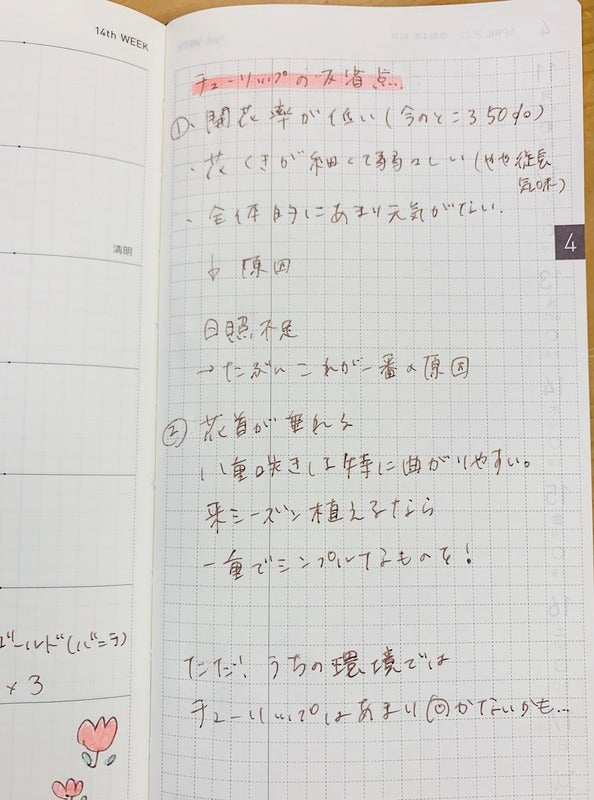 14th WEEK
清明
ゴールド(バニラ)
× 3
チューリップの反省点.
①、開花率が低い(今のところ50%)
・花くきが細くて弱々しい(やや徒長
気味)
・全体的にあまり元気がない.
↓ 原因
日照不足
→たぶんこれが一番の原因
② 花首が垂れる
八重咲きは特に曲がりやすい。
来シーズン植えるなら
一重でシンプルなものを!
ただ!うちの環境では
チューリップはあまり向かないかも…
4